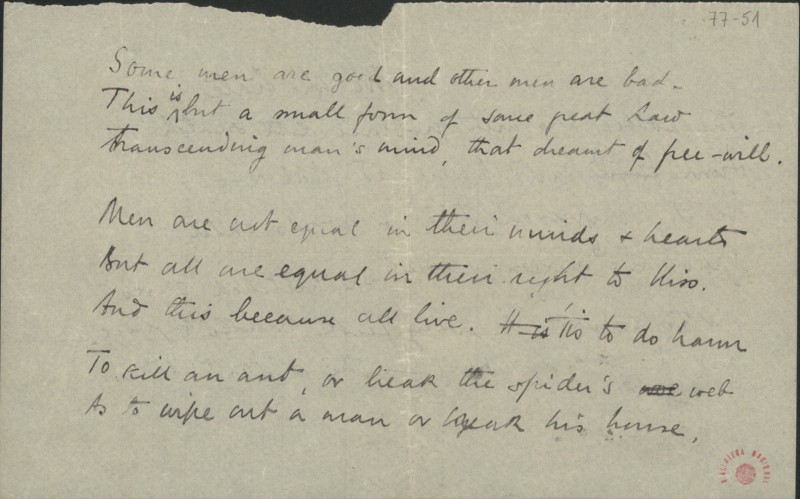 77-51
Some men are good and other men are bad.
This is but a small form of some great Law
Transcending man's mind, that dreamt of free-will.
Men are not equal in their minds & hearts
But all are equal in their right to bliss.
And this because all live. It is 'Tis to do harm
To kill an ant, or break the spider's web
As to wipe out a man or break his house.
BIBLIOTECA NACIONAL